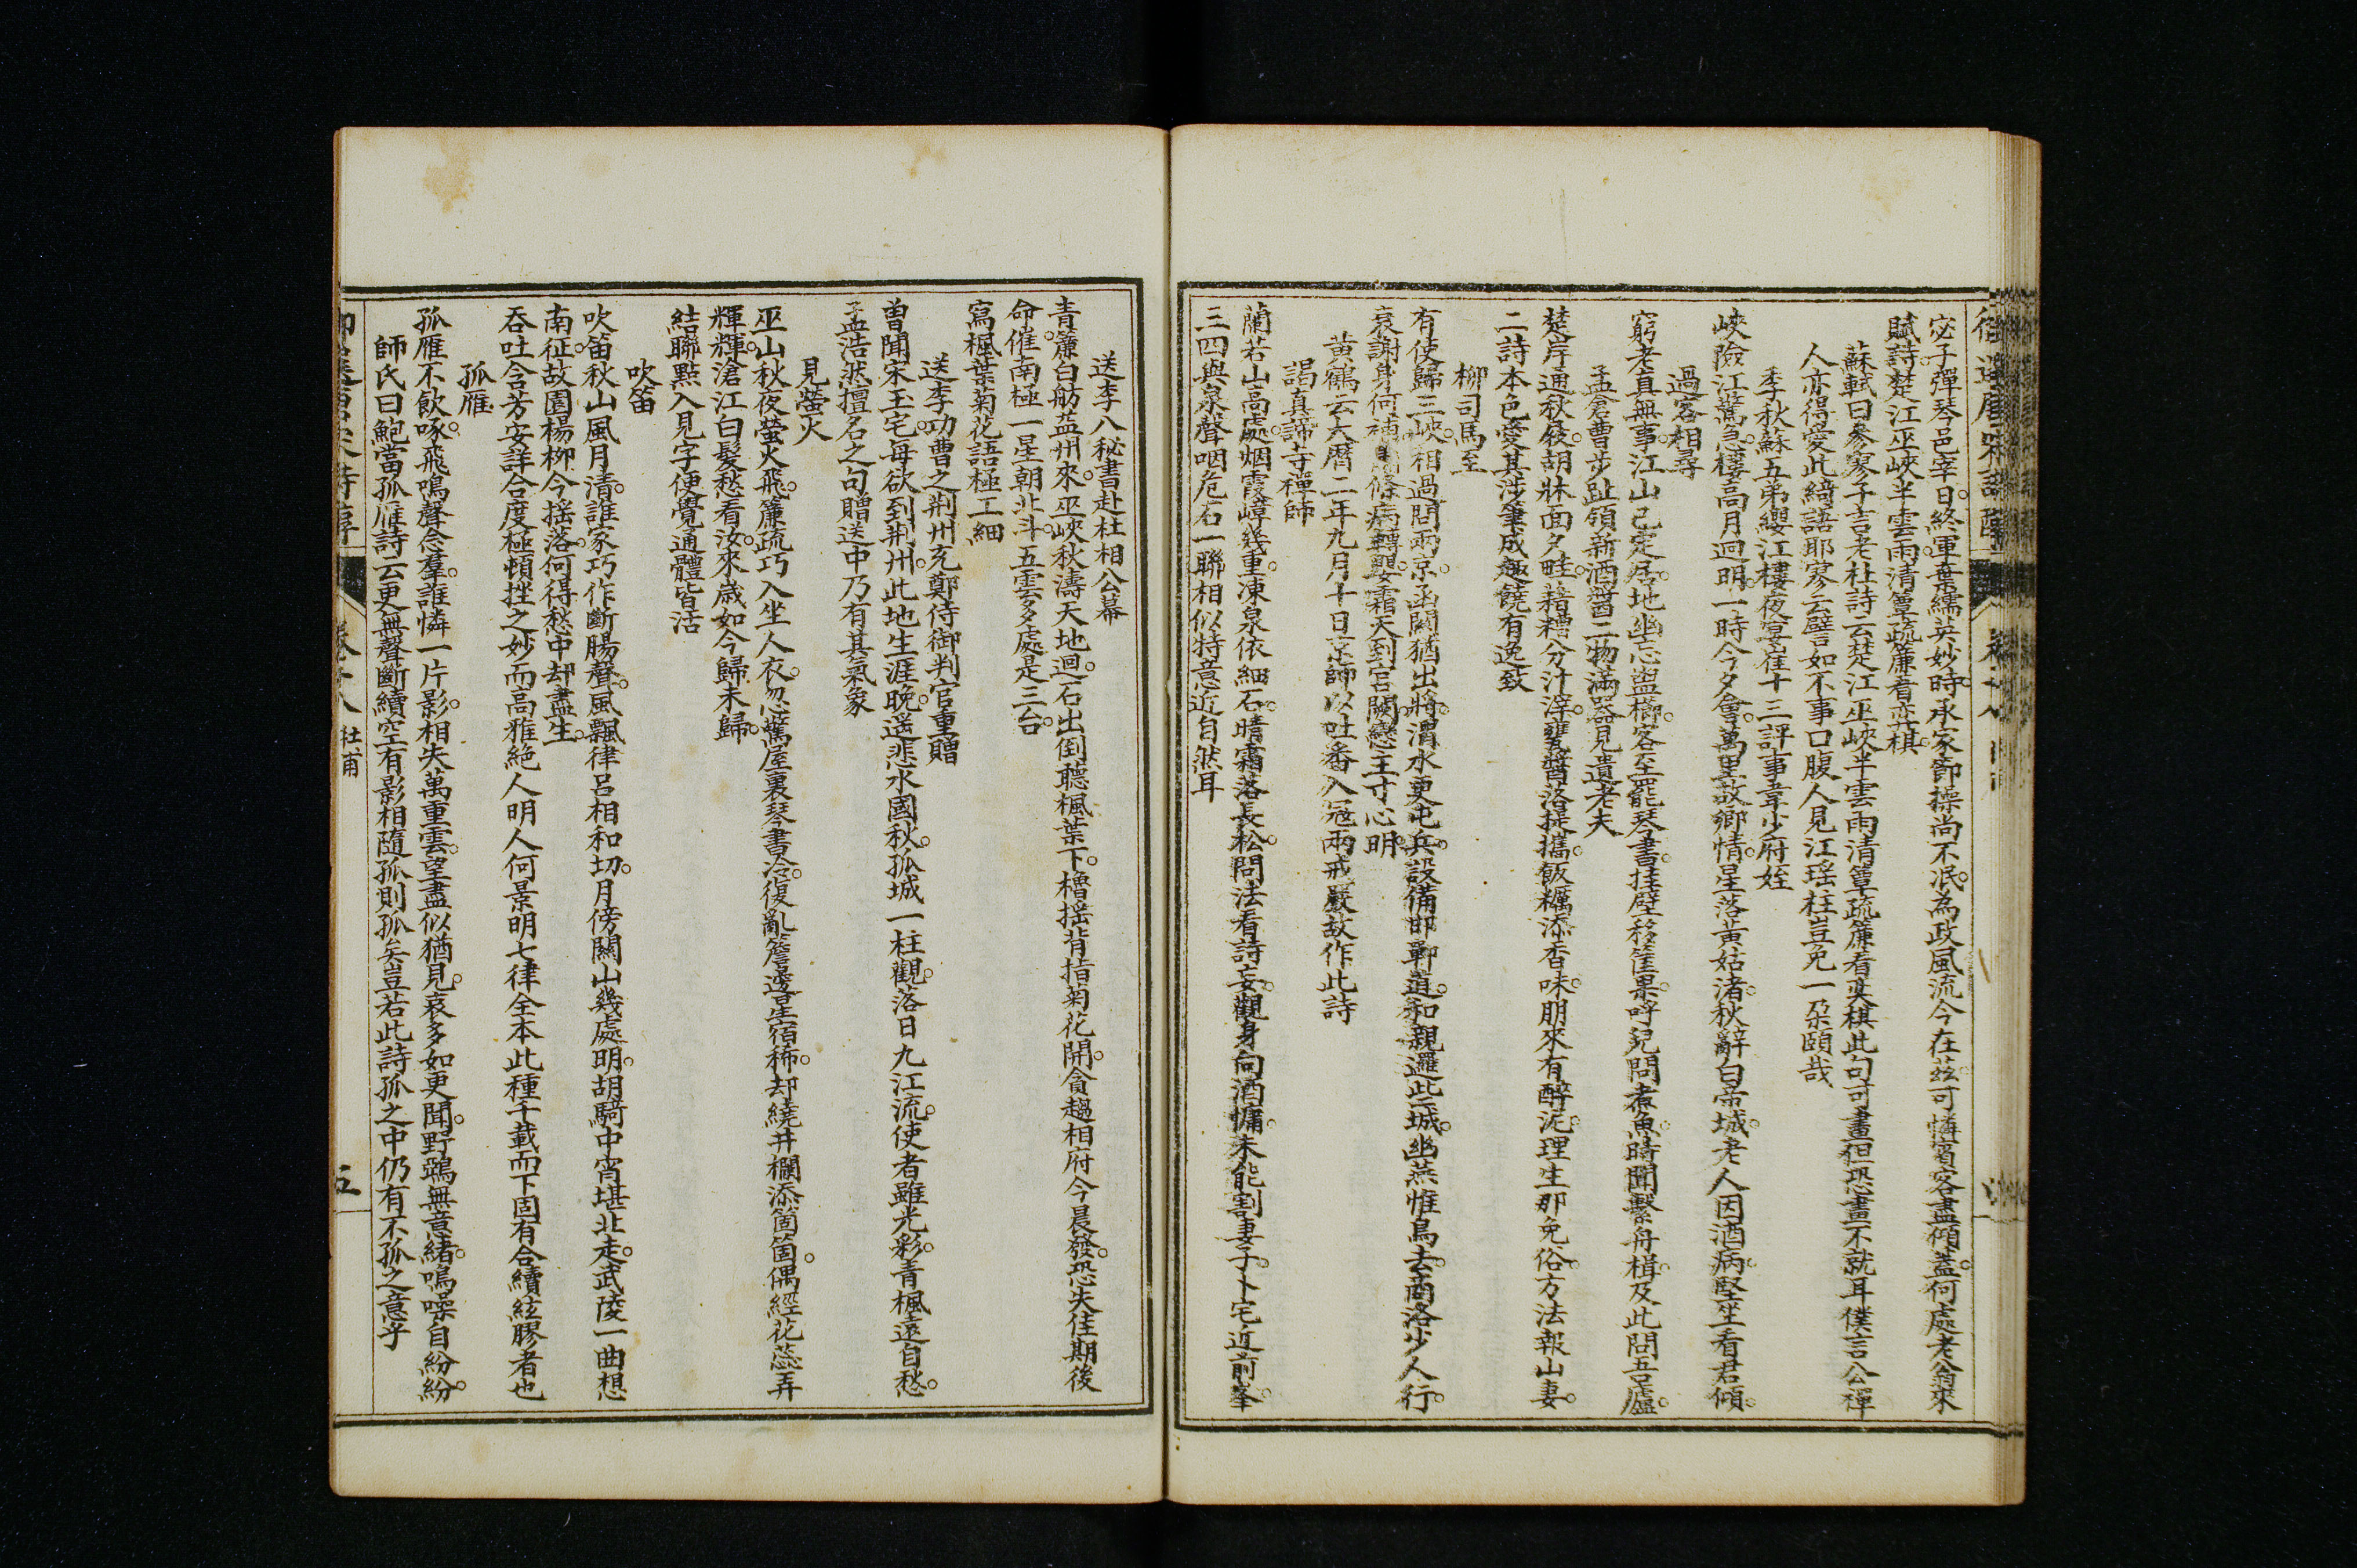 宓子彈琴邑宰日終軍棄繻英妙時承家節操尚不泯為政風流今在茲可憐賓客盡傾蓋何處老翁來
賦詩楚江巫峽半雲雨清簟疏簾看弈棋
蘇軾曰參寥子言老杜詩云楚江巫峽半雲雨清簟疏簾看奕棋此句可畫但恐畫不就耳僕言公禪
人亦得愛此綺語耶寥云譬如不事口腹人見江瑤柱豈免一朶頤哉
季秋蘇五弟纓江樓夜宴崔十三評事韋少府姪
峽險江驚急樓高月迥明一時今夕會萬里故鄉情星落黃姑渚秋辭白帝城老人因酒病堅坐看君傾
過客相尋
窮老真無事江山已定居地幽忘盥櫛客至罷琴書挂壁移筐果呼兒問煮魚時聞繫舟楫及此問吾廬
孟倉曹步趾領新酒醬二物滿器見遺老夫
楚岸通秋屐胡牀面夕畦藉糟分汁滓甕醬落提攜飯糲添香味朋來有醉泥理生那免俗方法報山妻
二詩本色愛其涉筆成趣饒有逸致
柳司馬至
有使歸三峽相過問兩京函關猶出將渭水更屯兵設備邯鄲道和親邏些城幽燕惟鳥去商洛少人行
衰謝身何補蕭條病轉嬰霜天到宮闕戀主寸心明
黃鶴云大曆二年九月十日京師以吐番入冦兩戒嚴故作此詩
謁真諦寺禪師
蘭若山高處烟霞嶂幾重凍泉依細石晴霜落長松問法看詩妄觀身向酒慵未能割妻子卜宅近前峯
三四與泉聲咽危石一聯相似特意近自然耳
送李八秘書赴杜相公幕
青簾白舫益州來巫峽秋濤天地迴石出倒聽楓葉下櫓搖背指菊花開貪趨相府今晨發恐失佳期後
命催南極一星朝北斗五雲多處是三台
寫楓葉菊花語極工細
送李功曹之荆州充鄭侍御判官重贈
曾聞宋玉宅每欲到荆州此地生涯晚遥悲水國秋孤城一柱觀落日九江流使者雖光彩青楓遠自愁
孟浩然擅名之句贈送中乃有其氣象
見螢火
巫山秋夜螢火飛簾疏巧入坐人衣忽驚屋裏琴書冷復亂簷邊星宿稀却繞井欄添箇箇偶經花蕊弄
輝輝滄江白髮愁看汝來歲如今歸未歸
結聯點入見字便覺通體皆活
吹笛
吹笛秋山風月清誰家巧作斷腸聲風飄律呂相和切月傍關山幾處明胡騎中宵堪北走武陵一曲想
南征故園楊柳今搖落何得愁中却盡生
吞吐含芳安詳合度極頓挫之妙而高雅絶人明人何景明七律全本此種千載而下固有合續絃膠者也
孤雁
孤雁不飲啄飛鳴聲念羣誰憐一片影相失萬重雲望盡似猶見哀多如更聞野鵶無意緒鳴噪自紛紛
師氏曰鮑當孤雁詩云更無聲斷續空有影相隨孤則孤矣豈若此詩孤之中仍有不孤之意乎
杜甫
五